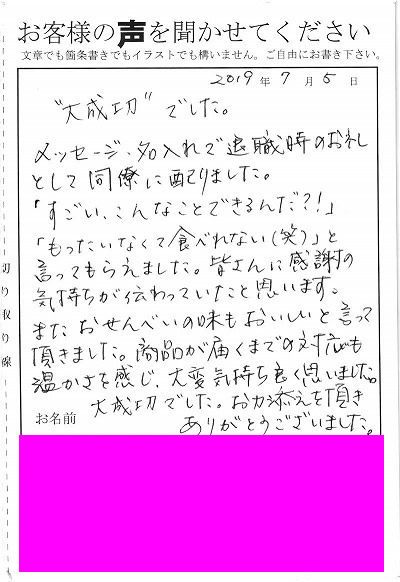 お客様の声を聞かせてください
文章でも箇条書きでもイラストでも構いません。ご自由にお書き下さい。
2019年7月5日
"大成功"でした。
メッセージ、名入れで退職時のお礼
として同僚に配りました。
「すごい、こんなことできるんだ?!」
「もったいなくて食べれない(笑)」と
言ってもらえました。皆さんに感謝の
気持ちが伝わっていたと思います。
またおせんべいの味もおいしいと言って
頂きました。商品が届くまでの対応も
温かさを感じ、大変気持ち良く思いました。
大成功でした。お力添えを頂き
ありがとうございました。
お名前
切り取り線